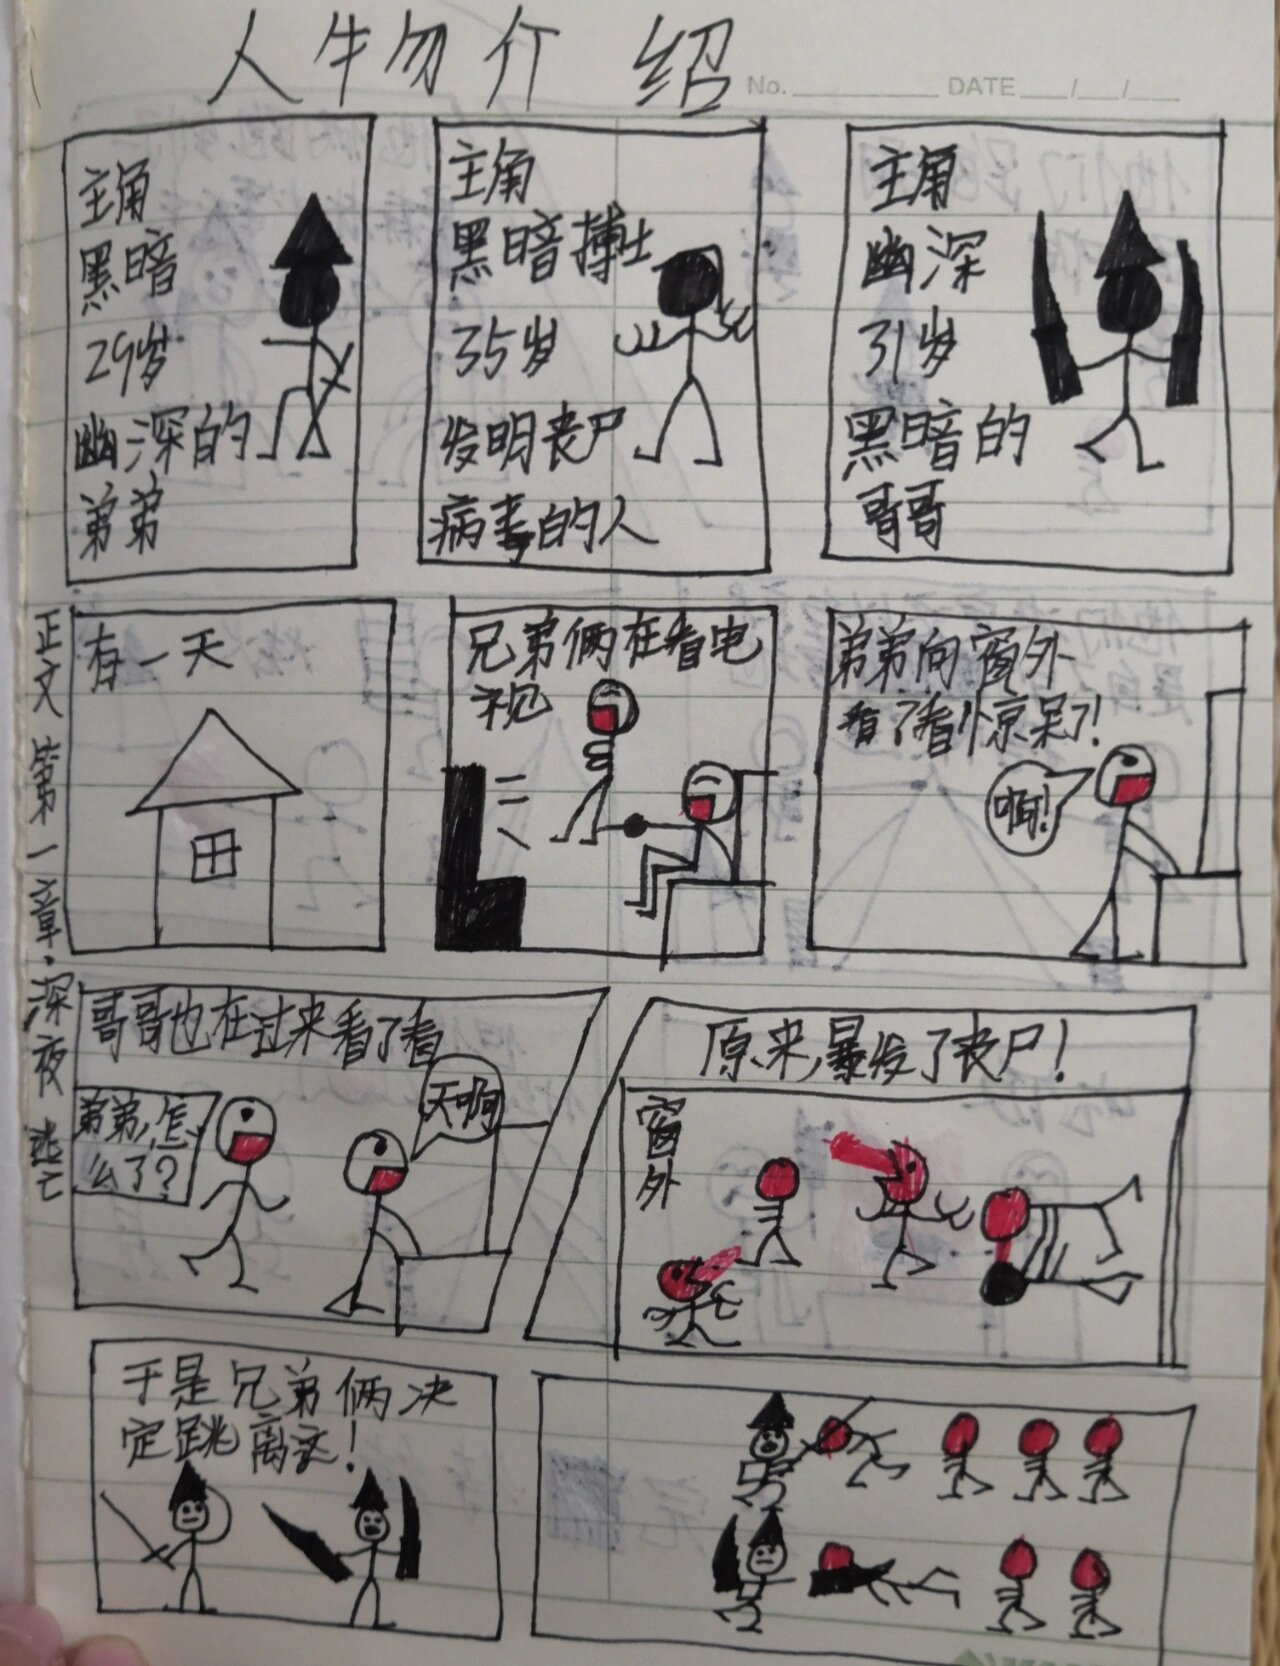 人物介绍
No. DATE / /
主角
黑暗
29岁
幽深的
弟弟
主角
黑暗博士
35岁
发明丧尸
病毒的人
主角
幽深
31岁
黑暗的
哥哥
正文第一章·深夜逃亡
有一天
兄弟俩在看电
视
弟弟向窗外
看了看惊呆了!
啊!
哥哥也在过来看了看
弟弟,怎
么了?
天啊
原来,暴发了丧尸!
窗外
于是兄弟俩决
定跳离这!